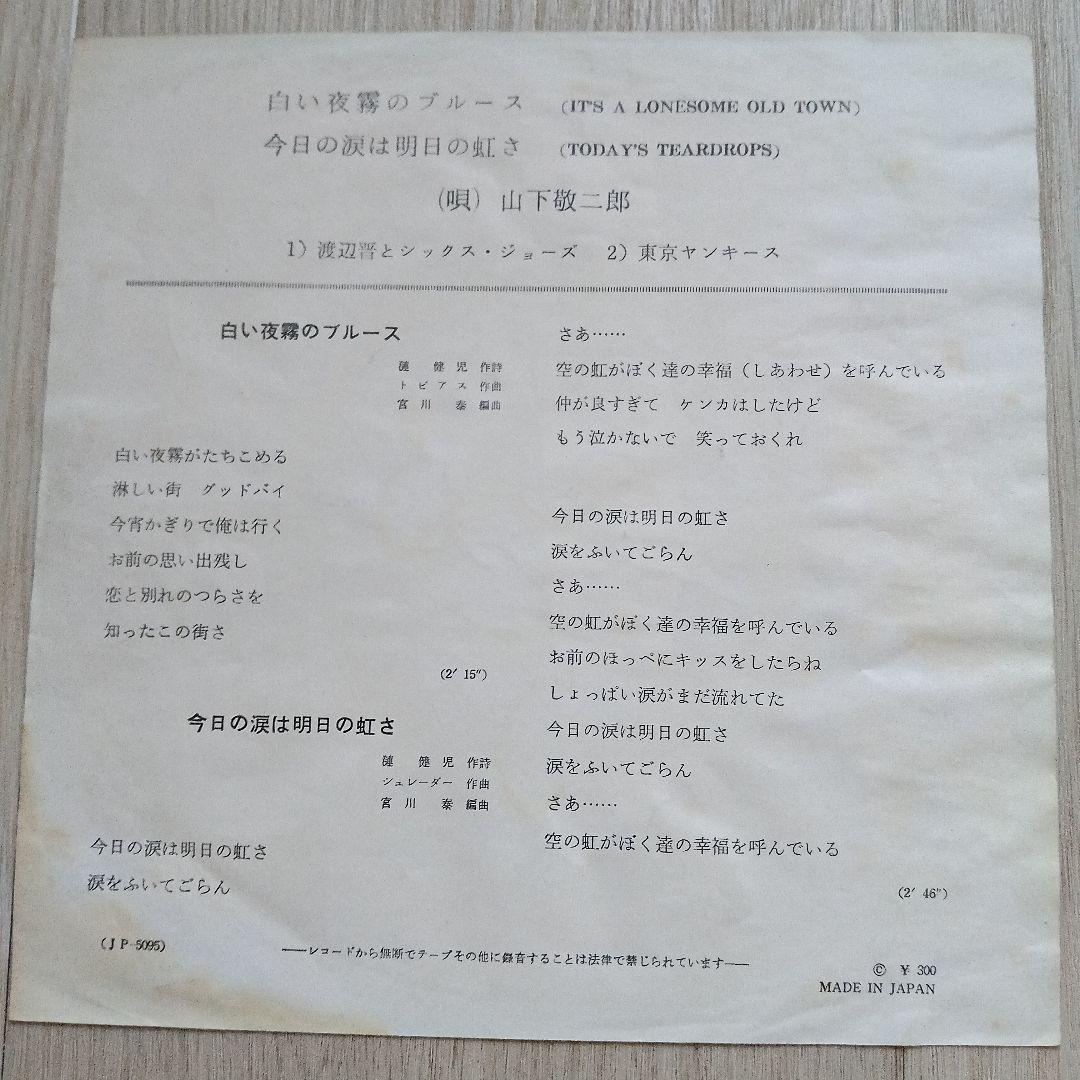 白い夜霧のブルース (IT'S A LONESOME OLD TOWN)
今日の涙は明日の虹さ (TODAY'S TEARDROPS)
(唄) 山下敬二郎
1) 渡辺晋とシックス・ジョーズ 2) 東京ヤンキース
白い夜霧のブルース
漣 健児 作詩
トビアス 作曲
宮川 泰 編曲
白い夜霧がたちこめる
淋しい街 グッドバイ
今宵かぎりで俺は行く
お前の思い出残し
恋と別れのつらさを
知ったこの街さ
(2′ 15″)
今日の涙は明日の虹さ
漣 健児 作詩
シュレーダー 作曲
宮川 泰 編曲
今日の涙は明日の虹さ
涙をふいてごらん
さあ……
空の虹がぼく達の幸福(しあわせ)を呼んでいる
仲が良すぎて ケンカはしたけど
もう泣かないで 笑っておくれ
今日の涙は明日の虹さ
涙をふいてごらん
さあ……
空の虹がぼく達の幸福を呼んでいる
お前のほっぺにキッスをしたらね
しょっぱい涙がまだ流れてた
今日の涙は明日の虹さ
涙をふいてごらん
さあ……
空の虹がぼく達の幸福を呼んでいる
(2′ 46″)
(JP-5095)
――レコードから無断でテープその他に録音することは法律で禁じられています――
© ¥ 300
MADE IN JAPAN